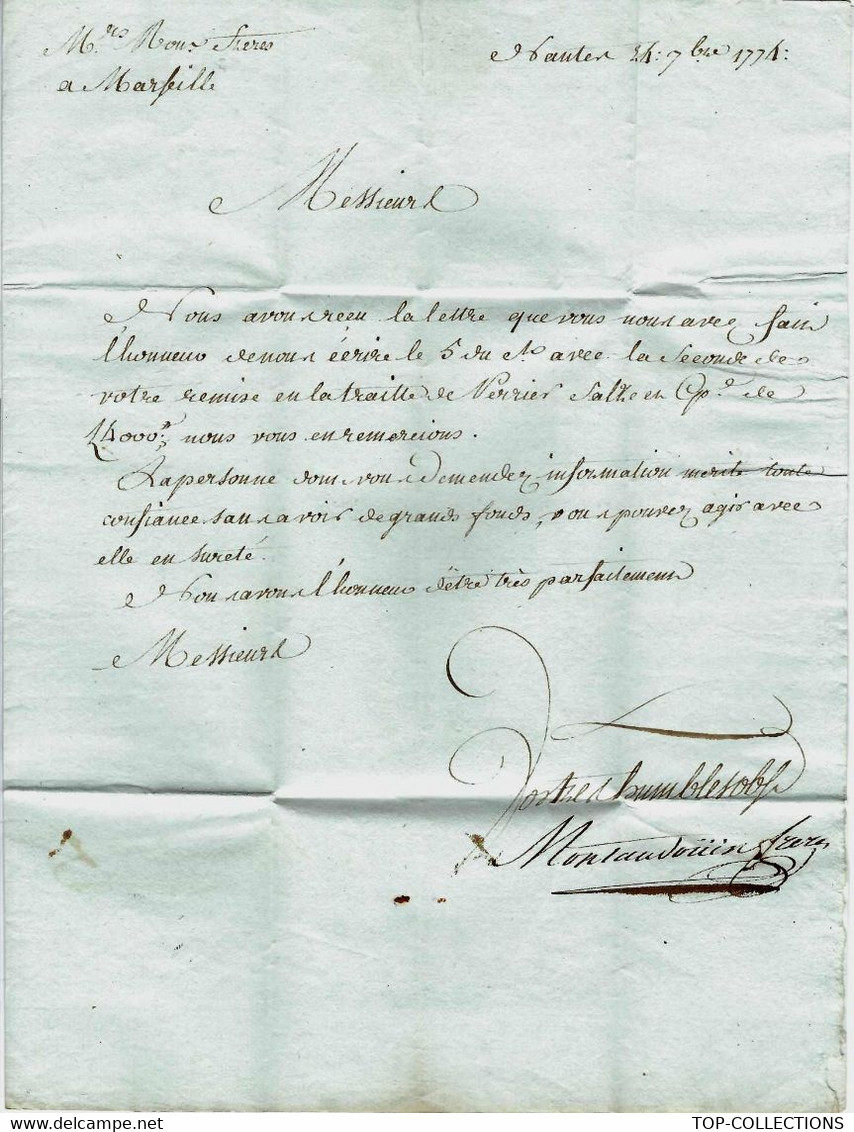 Mrs Roux freres
a Marseille
Nantes 7bre 1774:
Messieurs
Nous avons receu la lettre que vous nous avez fait
l'honneur de nous écrire le 5 du Ct avec la seconde de
votre remise en la traitte de Verrier sur en de
4000 nous vous en remercions.
La personne dont vous demendez information merite toute
confiance sans avoir de grands fonds, vous pouvez agir avec
elle en sureté.
Nous avons l'honneur d'être très parfaitement
Messieurs
Vos tres humbles ob
Montaudoüin freres
www.delcampe.net
TOP-COLLECTIONS